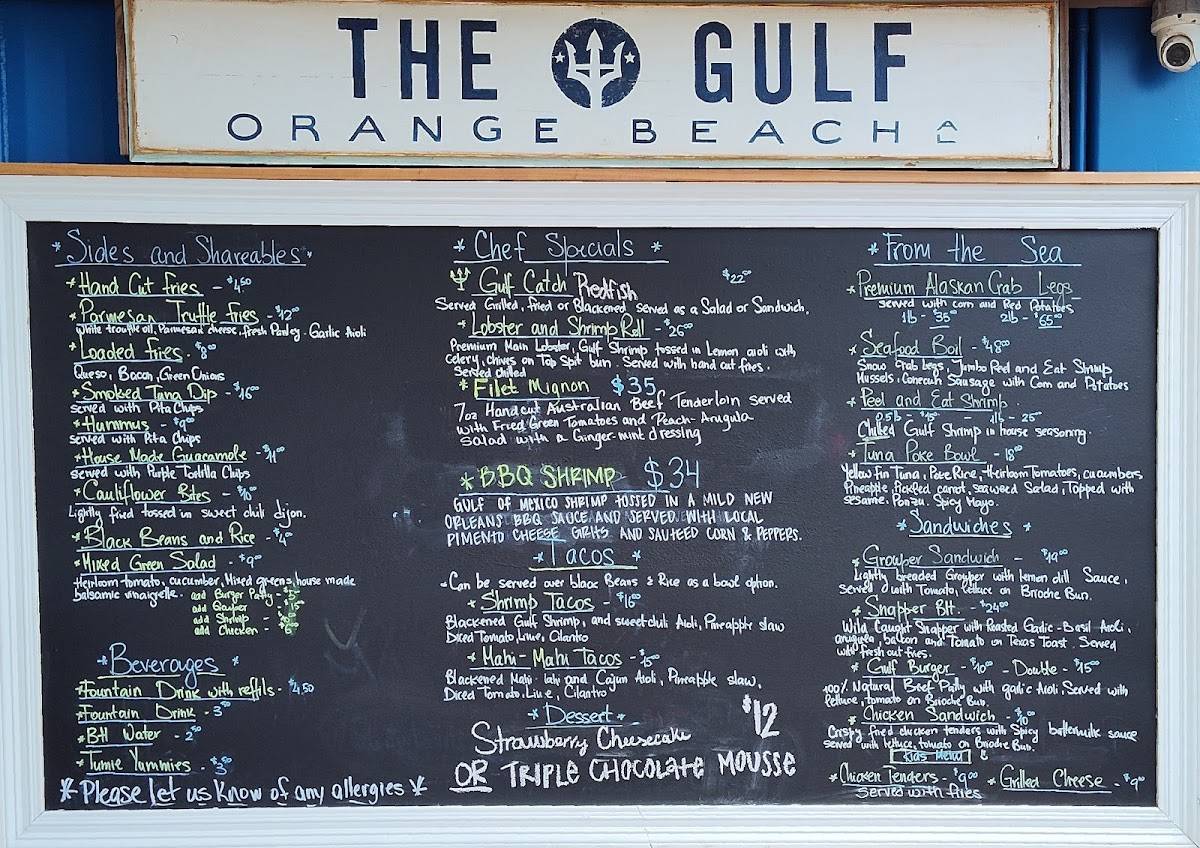 THE GULF
ORANGE BEACH AL
* Sides and Shareables *
* Hand Cut Fries - $4.50
* Parmesan Truffle Fries - $12.00
White trouffle oil, Parmesan cheese, fresh Parsley. Garlic Aioli
* Loaded Fries. $8.00
Queso, Bacon, Green Onions
* Smoked Tuna Dip - $16.00
served with Pita Chips
* Hummus - $9.00
served with Pita Chips
* House Made Guacamole - $11.00
served with Purple Tortilla Chips
* Cauliflower Bites - $10.00
Lightly fried tossed in sweet chili dijon.
* Black Beans and Rice - $4.00
* Mixed Green Salad - $9.00
Heirloom tomato, cucumber, Mixed greens, house made
balsamic vinaigrette.
add Burger Patty -
add Grouper -
add Shrimp -
add Chicken -
* Beverages *
* Fountain Drink with refills - $4.50
* Fountain Drink - 3.00
* BH Water - 2.00
* Tumie Yummies - $3.50
* Please let us know of any allergies *
* Chef Specials *
Gulf Catch Redfish $22.00
Served Grilled, Fried or Blackened served as a Salad or Sandwich.
* Lobster and Shrimp Roll - $26.00
Premium Main Lobster, Gulf Shrimp tossed in Lemon aioli with
Celery, chives on Top Spit bun. Served with hand cut fries.
Served chilled
* Filet Mignon $35
7oz Handcut Australian Beef Tenderloin served
with Fried Green Tomatoes and Peach-Arugula
Salad with a Ginger-mint dressing
* BBQ SHRIMP $34
GULF OF MEXICO SHRIMP TOSSED IN A MILD NEW
ORLEANS BBQ SAUCE AND SERVED WITH LOCAL
PIMENTO CHEESE GRITS AND SAUTEED CORN & PEPPERS.
* Tacos *
* Can be served over black Beans & Rice as a bowl option.
* Shrimp Tacos - $16.00
Blackened Gulf Shrimp, and sweet chili Aioli, Pineapple slaw
Diced Tomato, Lime, Cilantro
* Mahi-Mahi Tacos - $15.00
Blackened Mahi-Mahi and Cajun Aioli, Pineapple slaw,
Diced Tomato, Lime, Cilantro
* Dessert * $12
Strawberry Cheesecake
OR TRIPLE CHOCOLATE MOUSSE
* From the Sea *
* Premium Alaskan Crab Legs
served with corn and Red Potatoes
1lb - $35.00 2lb - $65.00
* Seafood Boil - $48.00
Snow Crab Legs, Jumbo Peel and Eat Shrimp
Mussels, Conecuh Sausage with Corn and Potatoes
* Peel and Eat Shrimp.
0.5lb - $15.00 1lb - 25.00
Chilled Gulf Shrimp in house seasoning.
* Tuna Poke Bowl - 18.00
Yellow fin Tuna, Poke Rice, Heirloom Tomatoes, cucumbers
Pineapple, Pickled carrot, seaweed Salad, Topped with
sesame. Ponzu. Spicy Mayo.
* Sandwiches *
Grouper Sandwich - $19.00
Lightly breaded Grouper with lemon dill Sauce,
Served with Tomato, lettuce on Brioche Bun.
* Snapper Blt. - $24.00
Wild Caught Snapper with Roasted Garlic-Basil Aioli,
arugula, bacon and Tomato on Texas Toast. Served
with fresh cut fries.
* Gulf Burger - $10.00 - Double - $15.00
100% Natural Beef Patty with garlic Aioli Served with
lettuce, tomato on Brioche Bun.
* Chicken Sandwich - $10.00
Crispy fried chicken tenders with Spicy buttermilk sauce
served with lettuce, tomato on Brioche Bun.
Kids Menu
* Chicken Tenders - $9.00 * Grilled Cheese - $9.00
Served with fries